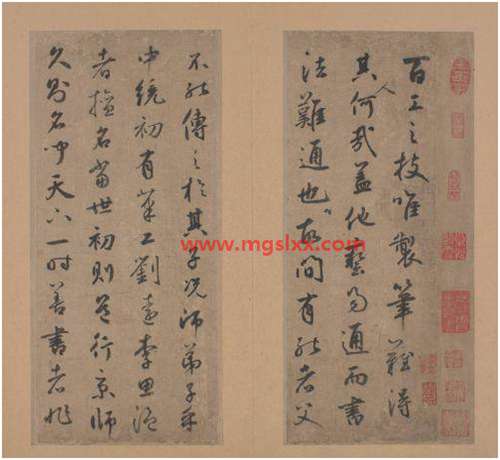 百工之技唯製筆難得
其人何哉蓋他藝易通而書
法難通也故間有能者父
不能傳之於其子況師弟子乎
中統初有筆工劉遠李思溫
者擅名當世初則行京師
久則名聞天下一時善書者非
www.mgslxx.com